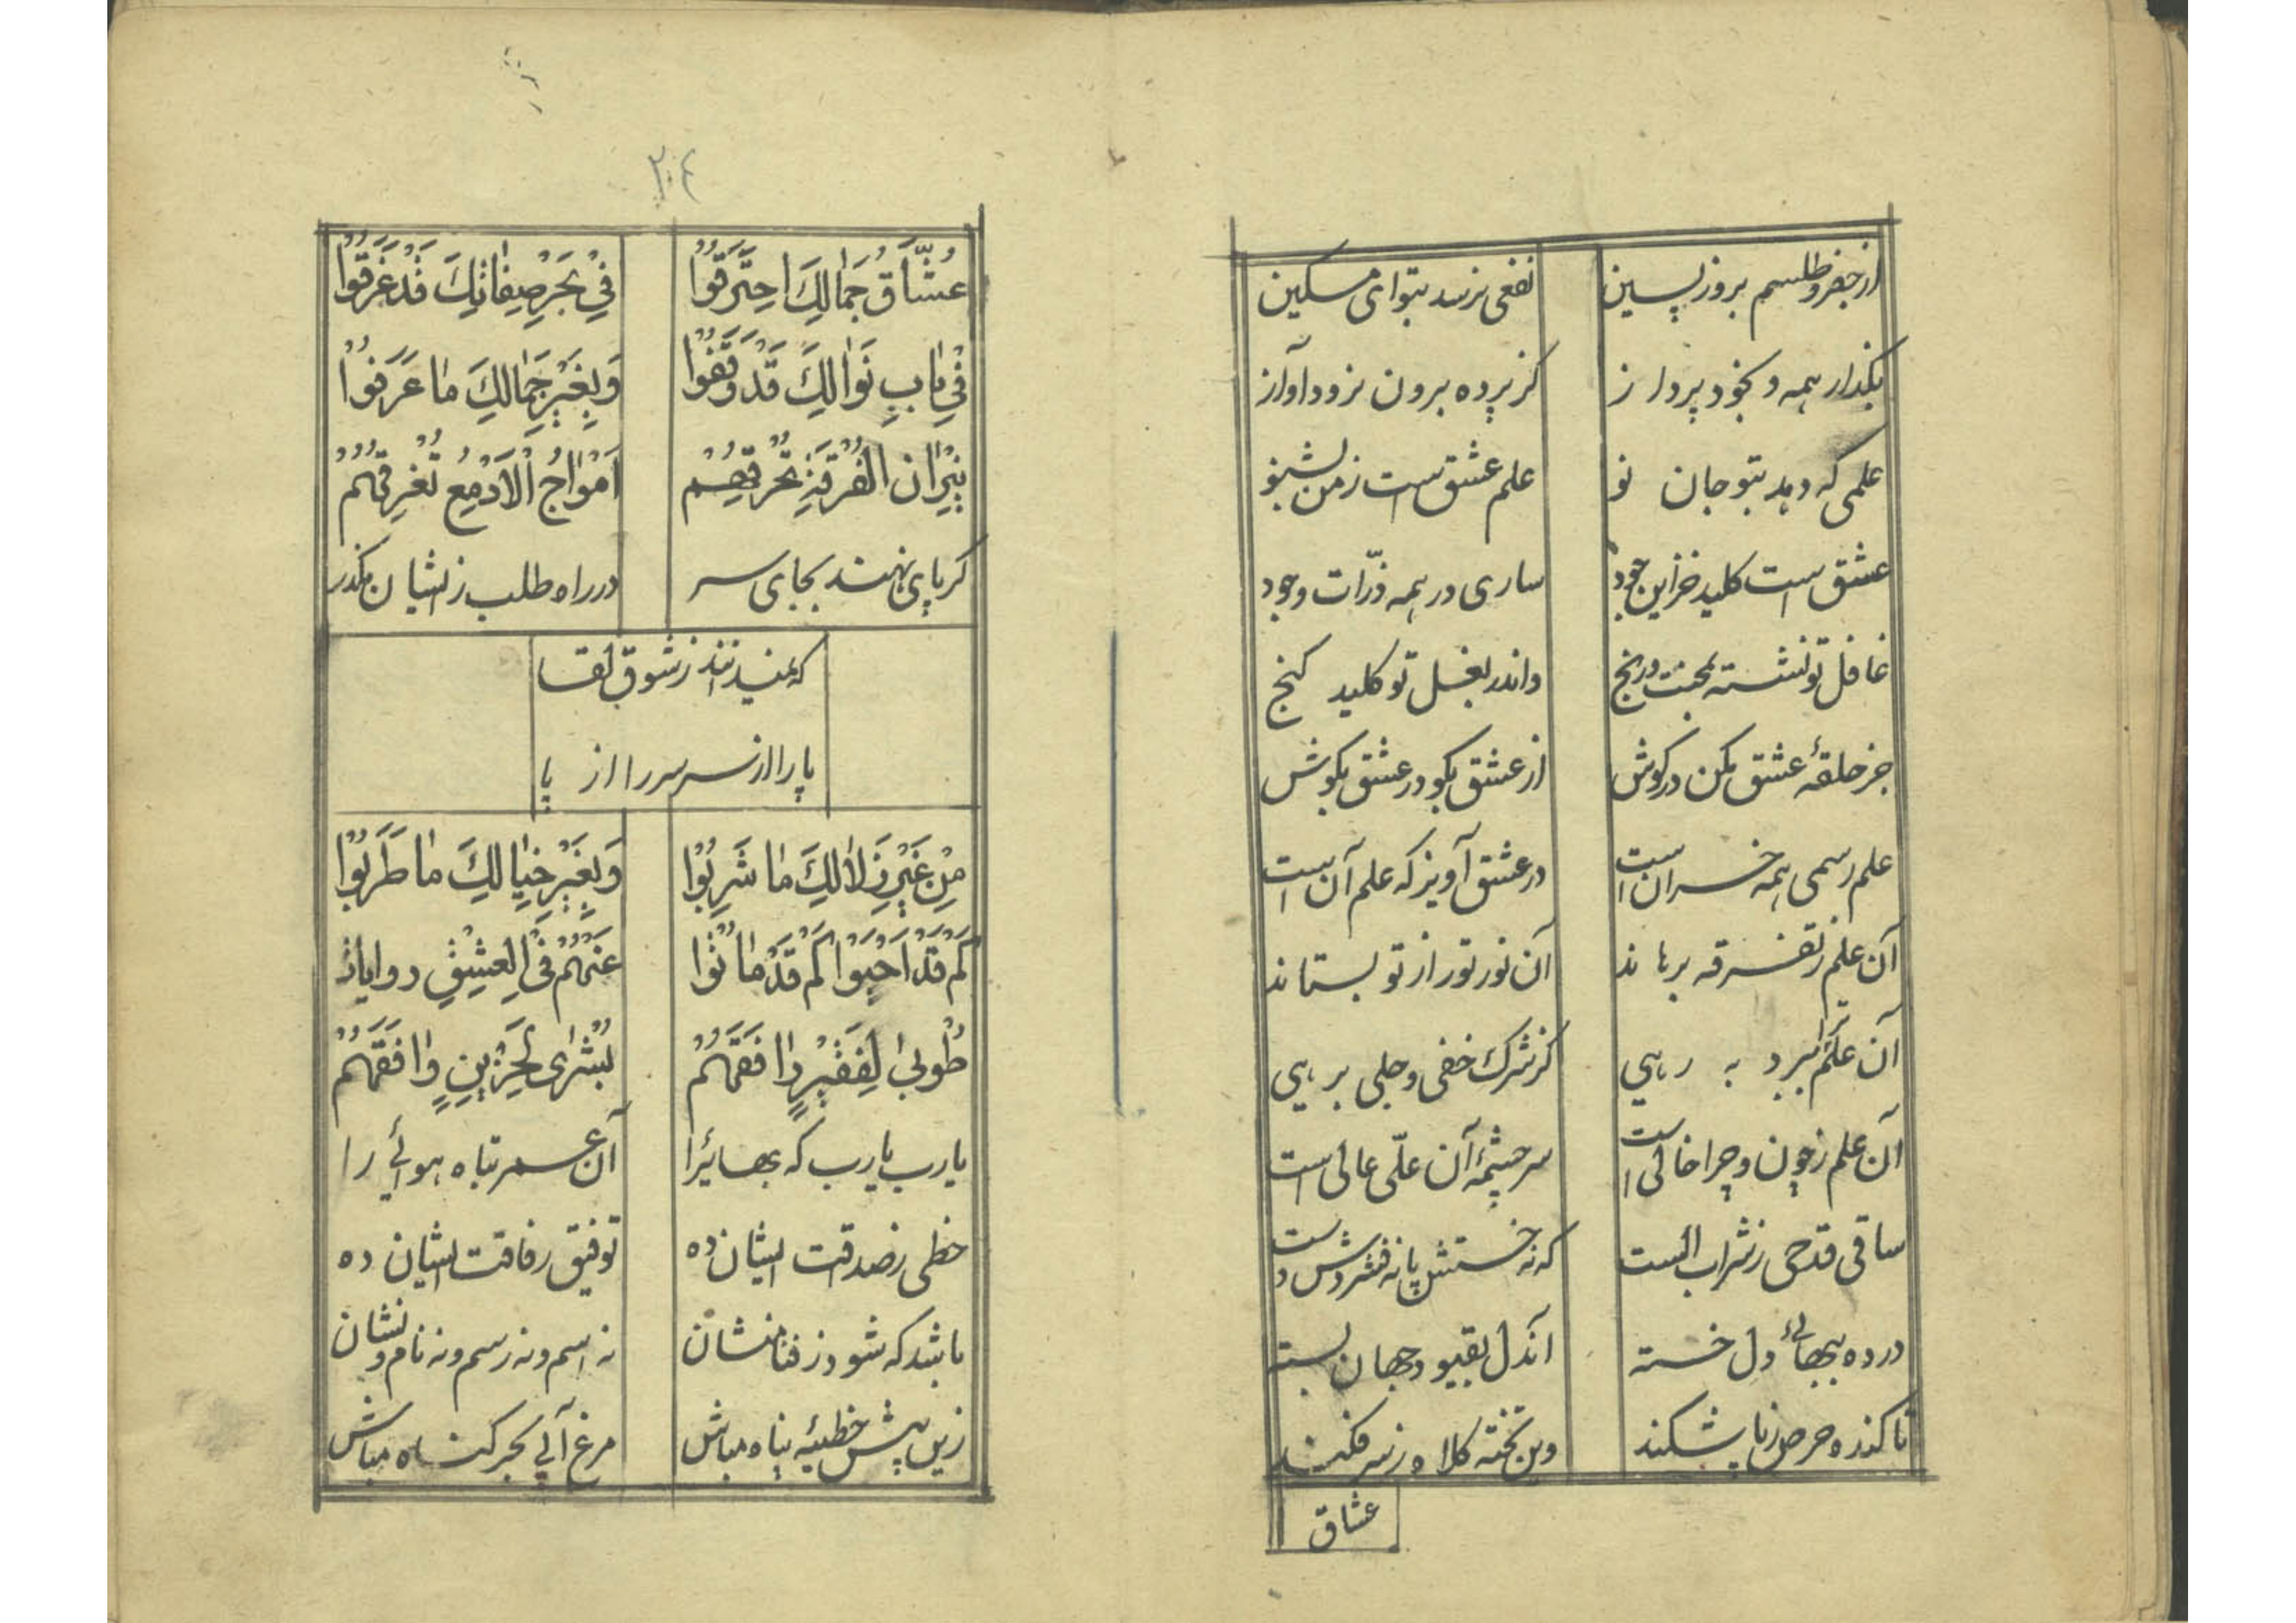 از جفر و طلسم بروز پسین نفعی نرسد بتو ای مسکین
بگذار همه و بخود پرداز کز پرده برون نرود آواز
علمی که دهد بتو جان نو علم عشق است ز من بشنو
عشق است کلید خزاین جود ساری در همه ذرّات وجود
غافل تو نشسته بمحنت و رنج واندر بغل تو کلید گنج
جز حلقهٔ عشق مکن در گوش از عشق بگو در عشق بکوش
علم رسمی همه خسران است در عشق آویز که علم آن است
آن علم ز تفرقه برهاند آن نور تو را از تو بستاند
آن علم ترا ببرد به رهی کز شرک خفی و جلی برهی
آن علم ز چون و چرا خالی است سرچشمهٔ آن علّی عالی است
ساقی قدحی ز شراب الست که نه خستش پا نه فشردش دست
در ده ببهائی دل خسته آندل بقیود جهان بسته
تا کنده حرص ز پا شکند وین تخته کلاه ز سر فکند
عشاق
٢٠٤
عُشَّاقُ جَمَالِكَ احتَرَقُوا فِي بَحْرِ صِفَاتِكَ قَدْ غَرَقُوا
فِي بَابِ نَوَالِكَ قَدْ وَقَفُوا وَبِغَيْرِ جَمَالِكَ مَا عَرَفُوا
نِيرَانُ الْفُرْقَةِ تُحْرِقُهُمْ اَمْوَاجُ الْاَدْمُعِ تُغْرِقُهُمْ
گر پای نهند بجای سر در راه طلب ز ایشان مگذر
که نمیدانند ز شوق لقا
پا را از سر سر را از پا
مِنْ غَيْرِ زَلَالِكَ مَا شَرِبُوا وَبِغَيْرِ خَيَالِكَ مَا طَرَبُوا
كَمْ قَدْ اَحْيَوْا كَمْ قَدْ مَاتُوا عَنْهُمْ فِي الْعِشْقِ روايات
طُوبَى لِفَقِيرٍ وَافَقَهُمْ بُشْرَى لِحَزِينٍ وَافَقَهُمْ
یا رب یا رب که بهائیرا آن عمر تباه هوائی را
حظی ز صداقت ایشان ده توفیق رفاقت ایشان ده
باشد که شود ز فنا منشان نه اسم و نه رسم و نه نام و نشان
زین پیش خطیئه پناه مباش مرغ آبی بحر گناه مباش